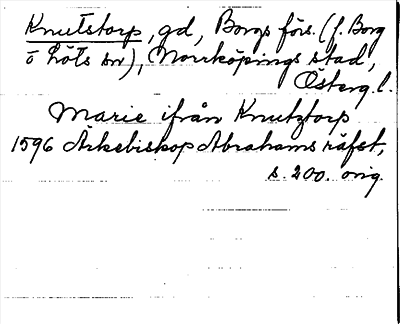 Knutstorp, gd, Borgs förs. (f. Borg
o Löts sn), Norrköpings stad,
Österg. l.
Marie ifrån Knutztorp
1596 Ärkebiskop Abrahams räfst,
s. 200. orig.